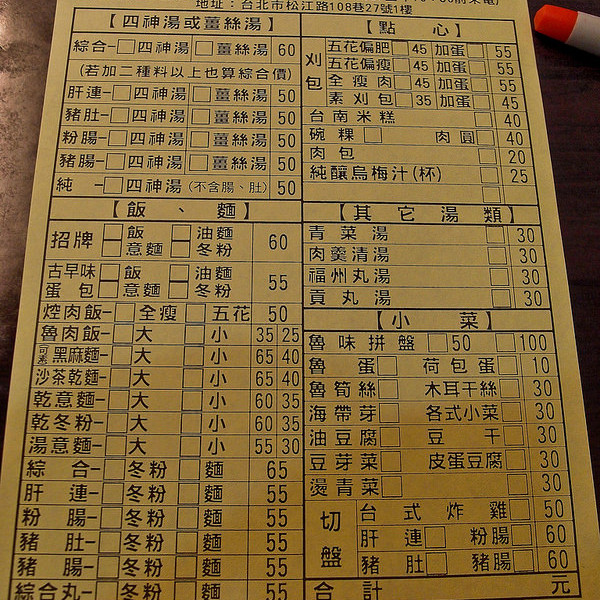 地址：台北市松江路108巷27號1樓
【四神湯或薑絲湯】
綜合─□四神湯□薑絲湯 60
(若加二種料以上也算綜合價)
肝連─□四神湯□薑絲湯 50
豬肚─□四神湯□薑絲湯 50
粉腸─□四神湯□薑絲湯 50
豬腸─□四神湯□薑絲湯 50
純 ─□四神湯(不含腸、肚) 50
【飯、麵】
招牌─□飯 油麵
意麵 冬粉 60
古早味 蛋包─□飯 油麵
意麵 冬粉 55
焢肉飯─□全瘦□五花 50
魯肉飯─□大□小 35 25
可素 黑麻麵─□大□小 65 40
沙茶乾麵─□大□小 65 40
乾意麵─□大□小 60 35
乾冬粉─□大□小 60 35
湯意麵─□大□小 55 30
綜合─□冬粉□麵 65
肝連─□冬粉□麵 55
粉腸─□冬粉□麵 55
豬肚─□冬粉□麵 55
豬腸─□冬粉□麵 55
綜合丸─□冬粉□麵 55
【點心】
刈包
五花偏肥□45 加蛋□ 55
五花偏瘦□45 加蛋□ 55
全瘦肉□45 加蛋□ 55
素刈包□35 加蛋□ 45
台南米糕□ 40
碗粿□ 肉圓□ 40
肉包□ 20
純釀烏梅汁(杯)□ 25
【其它湯類】
青菜湯□ 30
肉羹清湯□ 30
福州丸湯□ 30
貢丸湯□ 30
【小菜】
魯味拼盤□50 □100
魯蛋□ 荷包蛋□ 10
魯筍絲□ 木耳干絲□ 30
海帶芽□ 各式小菜□ 30
油豆腐□ 豆干□ 30
豆芽菜□ 皮蛋豆腐□ 30
燙青菜□ 30
切盤
台式炸雞□ 50
肝連□ 粉腸□ 60
豬肚□ 豬腸□ 60
合計 元